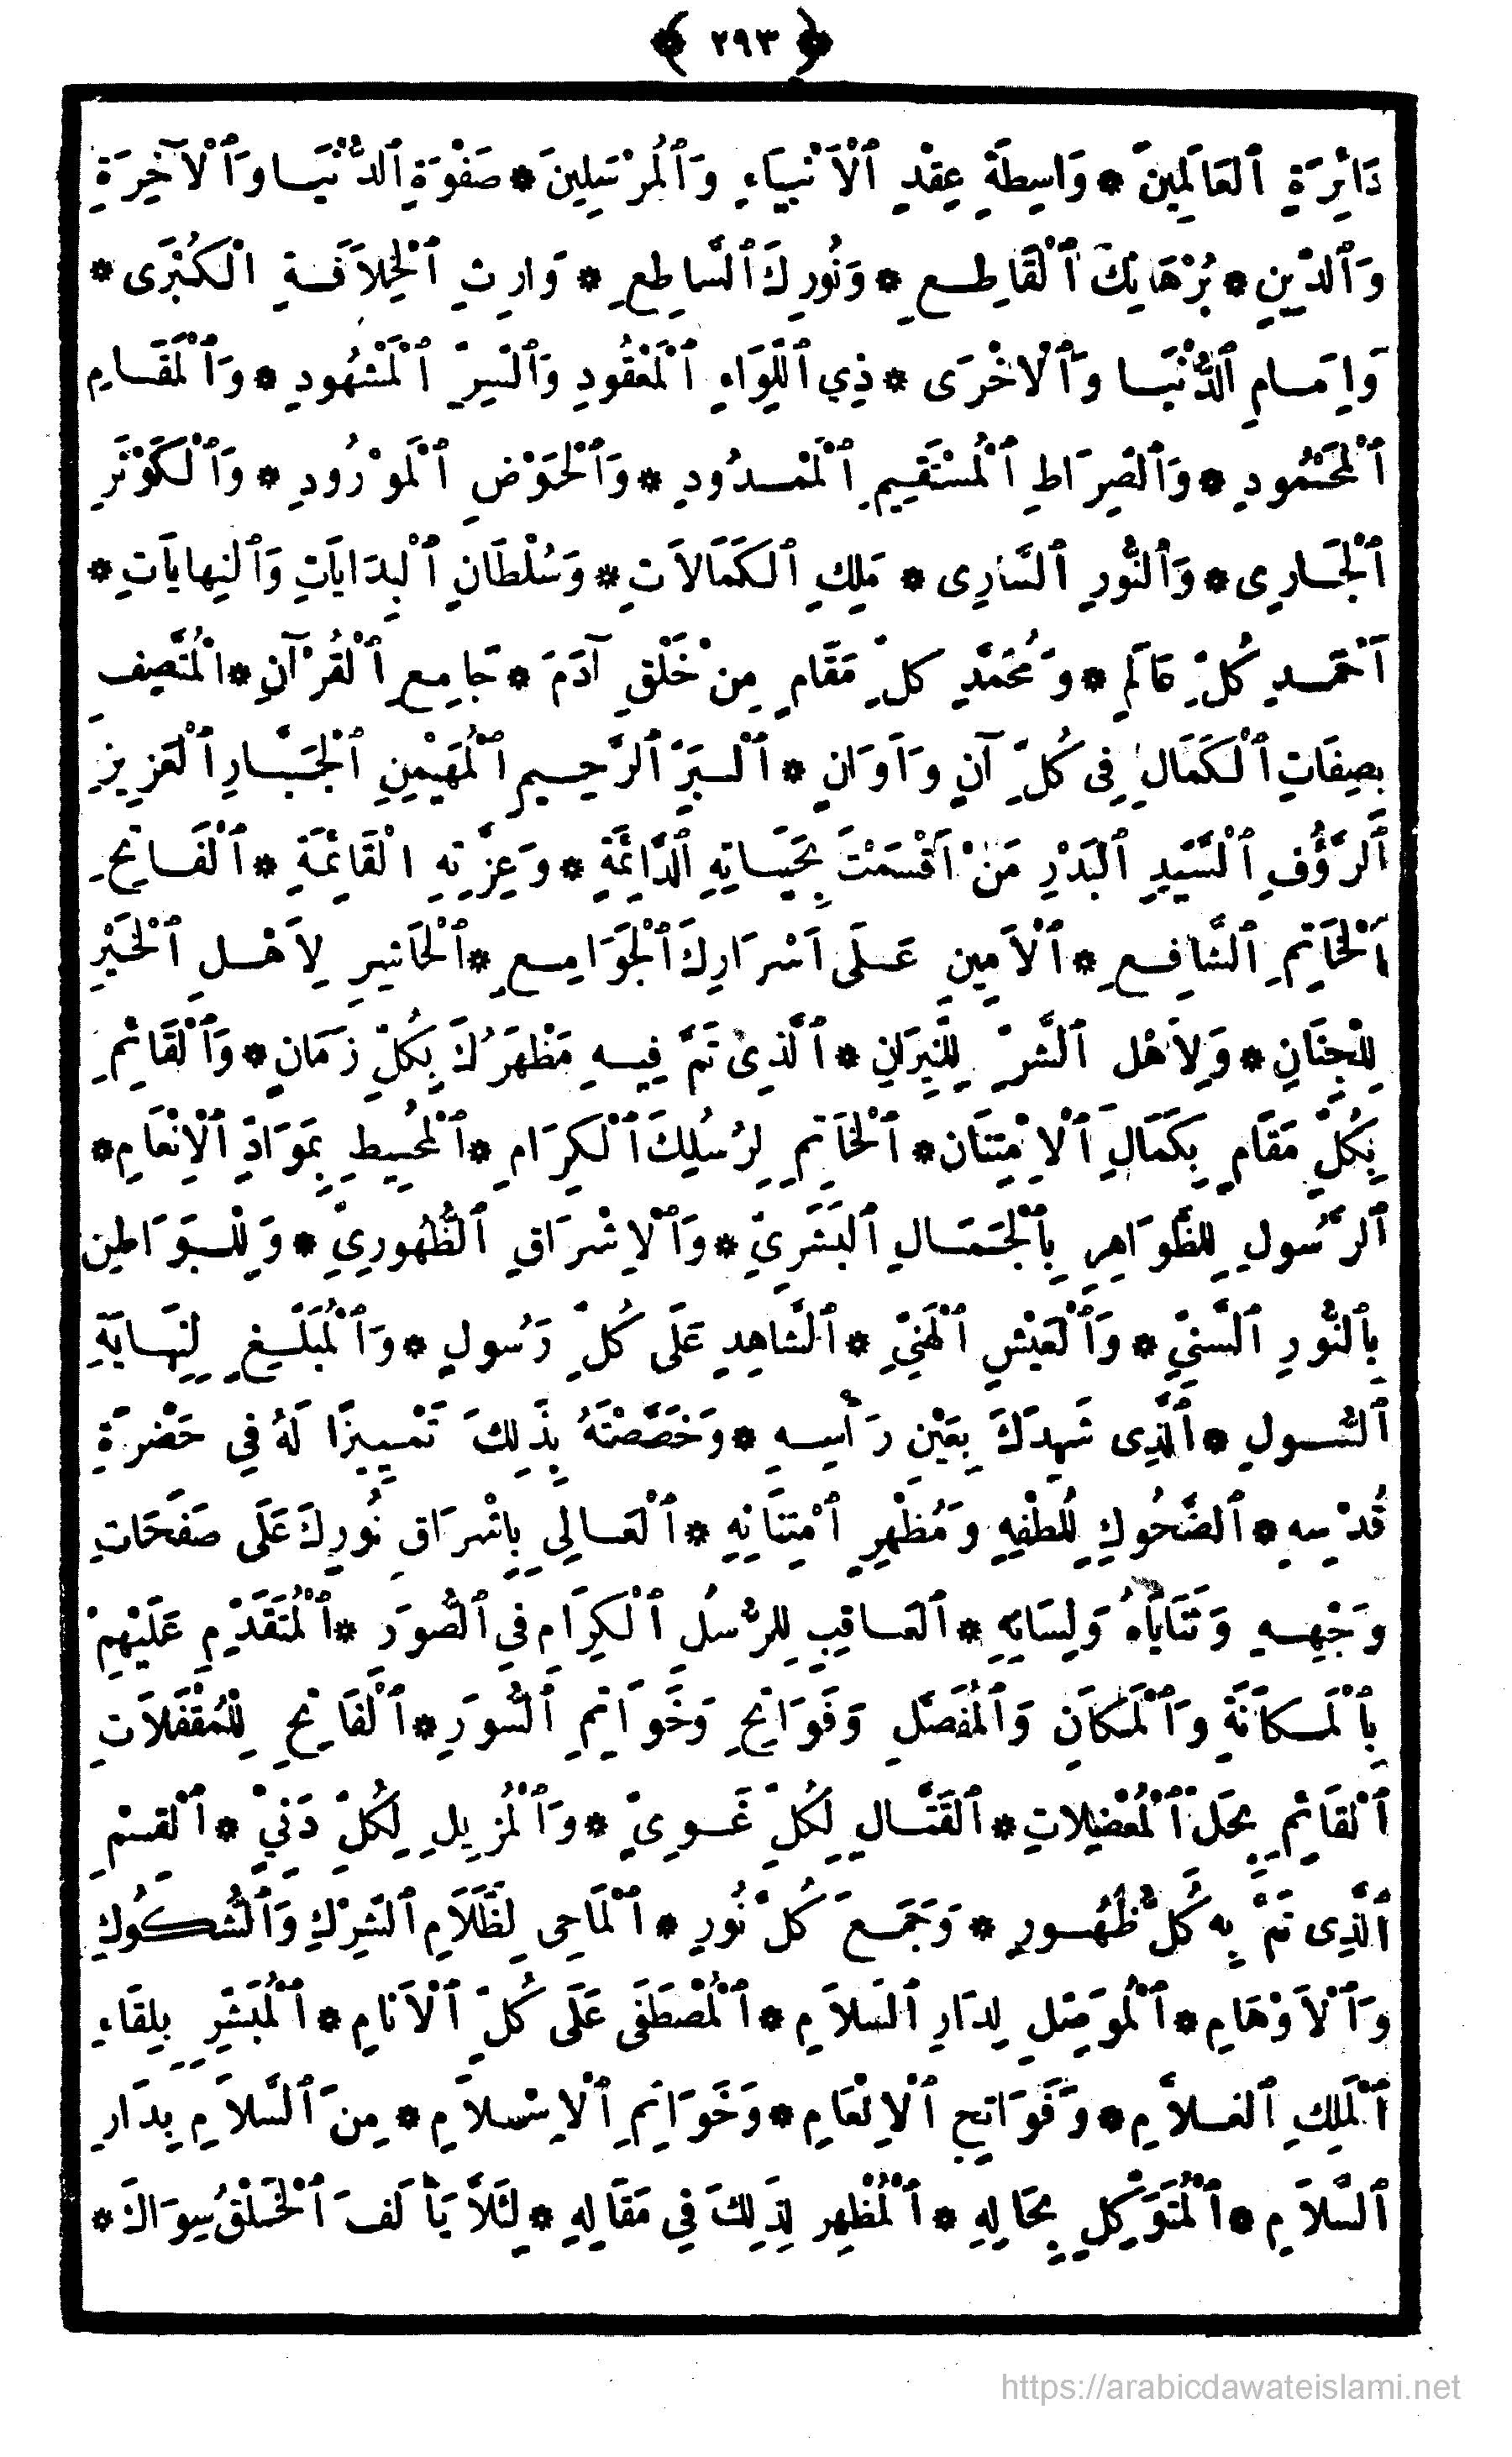 ﴿ ٢٩٣ ﴾
دَائِرَةِ ٱلْعَالَمِينَ * وَاسِطَةِ عِقْدِ ٱلْأَنْبِيَاءِ وَٱلْمُرْسَلِينَ * صَفْوَةِ ٱلدُّنْيَا وَٱلْآخِرَةِ
وَٱلدِّينِ * بُرْهَانِكَ ٱلْقَاطِعِ * وَنُورِكَ ٱلسَّاطِعِ * وَارِثِ ٱلْخِلَافَةِ الْكُبْرَى *
وَاِمَامِ ٱلدُّنْيَا وَٱلْاُخْرَى * ذِي ٱللِّوَاءِ ٱلْمَعْقُودِ وَٱلسِّرِّ ٱلْمَشْهُودِ * وَٱلْمَقَامِ
ٱلْمَحْمُودِ * وَٱلصِّرَاطِ ٱلْمُسْتَقِيمِ ٱلْمَمْدُودِ * وَٱلْحَوْضِ ٱلْمَوْرُودِ * وَٱلْكَوْثَرِ
ٱلْجَارِى * وَٱلنُّورِ ٱلسَّارِى * مَلِكِ ٱلْكَمَالَاتِ * وَسُلْطَانِ ٱلْبِدَايَاتِ وَٱلنِّهَايَاتِ *
اَحْمَدِ كُلِّ عَالَمٍ * وَمُحَمَّدِ كُلِّ مَقَامٍ مِنْ خَلْقِ آدَمَ * جَامِعِ ٱلْقُرْآنِ * الْمُتَّصِفِ
بِصِفَاتِ ٱلْكَمَالِ فِى كُلِّ آنٍ وَاَوَانٍ * ٱلْبَرِّ ٱلرَّحِيمِ ٱلْمُهَيْمِنِ ٱلْجَبَّارِ ٱلْعَزِيزِ
ٱلرَّؤُفِ ٱلسَّيِّدِ ٱلْبَدْرِ مَنْ اَقْسَمْتَ بِحَيَاتِهِ ٱلدَّائِمَةِ * وَعِزَّتِهِ الْقَائِمَةِ * ٱلْفَاتِحِ
ٱلْخَاتِمِ ٱلشَّافِعِ * ٱلْاَمِينِ عَلَى اَسْرَارِكَ ٱلْجَوَامِعِ * ٱلْحَاشِرِ لِاَهْلِ ٱلْخَيْرِ
لِلْجِنَانِ * وَلِاَهْلِ ٱلشَّرِّ لِلنِّيرَانِ * ٱلَّذِى تَمَّ فِيهِ مَظْهَرُكَ بِكُلِّ زَمَانٍ * وَٱلْقَائِمِ
بِكُلِّ مَقَامٍ بِكَمَالِ ٱلْاِمْتِنَانِ * ٱلْخَاتِمِ لِرُسُلِكَ ٱلْكِرَامِ * ٱلْمُحِيطِ بِمَوَادِّ ٱلْاِنْعَامِ *
ٱلرَّسُولِ لِلظَّوَاهِرِ بِٱلْجَمَالِ ٱلْبَشَرِيِّ * وَٱلْاِشْرَاقِ ٱلظُّهُورِيِّ * وَلِلْبَوَاطِنِ
بِٱلنُّورِ ٱلسَّنِيِّ * وَٱلْعَيْشِ ٱلْهَنِيِّ * ٱلشَّاهِدِ عَلَى كُلِّ رَسُولٍ * وَٱلْمُبَلِّغِ لِنِهَايَةِ
ٱلسُّولِ * ٱلَّذِى شَهِدَكَ بِعَيْنِ رَأْسِهِ * وَخَصَّصْتَهُ بِذَلِكَ تَمْيِيزًا لَهُ فِي حَضْرَةِ
قُدْسِهِ * ٱلضَّحُوكِ لِلُطْفِهِ وَمُظْهِرِ ٱمْتِنَانِهِ * ٱلْعَالِي بِاِشْرَاقِ نُورِكَ عَلَى صَفَحَاتِ
وَجْهِهِ وَثَنَايَاهُ وَلِسَانِهِ * ٱلْعَاقِبِ لِلرُّسُلِ ٱلْكِرَامِ فِي ٱلصُّوَرِ * ٱلْمُتَقَدِّمِ عَلَيْهِمْ
بِٱلْمَكَانَةِ وَٱلْمَكَانِ وَٱلْمُفَصَّلِ وَفَوَاتِحِ وَخَوَاتِمِ ٱلسُّوَرِ * ٱلْفَاتِحِ لِلْمُقْفَلَاتِ
ٱلْقَائِمِ بِحَلِّ ٱلْمُعْضِلَاتِ * ٱلْقَتَّالِ لِكُلِّ غَوِىٍّ * وَٱلْمُزِيلِ لِكُلِّ دَنِيٍّ * ٱلْقِسْمِ
ٱلَّذِى تَمَّ بِهِ كُلُّ ظُهُورٍ * وَجَمَعَ كُلَّ نُورٍ * ٱلْمَاحِى لِظَلَامِ ٱلشِّرْكِ وَٱلشُّكُوكِ
وَٱلْاَوْهَامِ * ٱلْمُوصِلِ لِدَارِ ٱلسَّلَامِ * ٱلْمُصْطَفَى عَلَى كُلِّ ٱلْاَنَامِ * ٱلْمُبَشِّرِ بِلِقَاءِ
ٱلْمَلِكِ ٱلْعَلَّامِ * وَفَوَاتِحِ ٱلْاِنْعَامِ * وَخَوَاتِمِ ٱلْاِسْلَامِ * مِنَ ٱلسَّلَامِ بِدَارِ
ٱلسَّلَامِ * ٱلْمُتَوَكِّلِ بِحَالِهِ * ٱلْمُظْهِرِ لِذَلِكَ فِى مَقَالِهِ * لِئَلَّا يَأْلَفَ ٱلْخَلْقُ سِوَاكَ *
https://arabicdawateislami.net